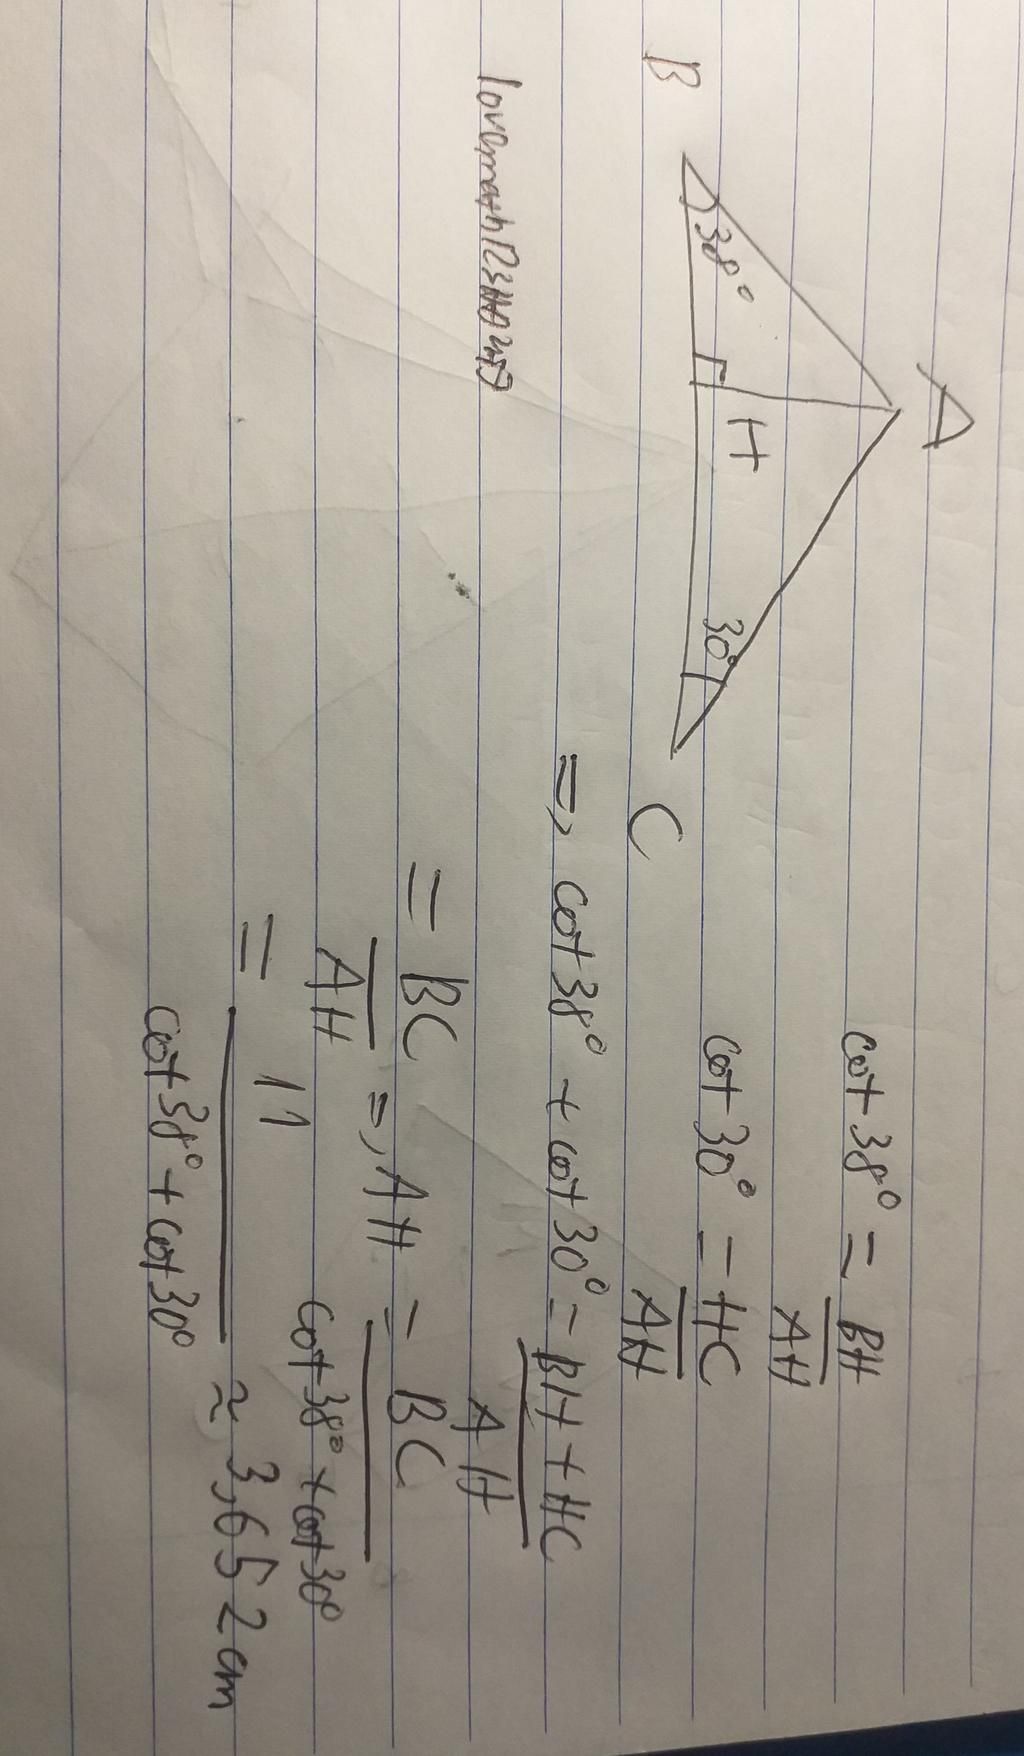 A
B 38° H 30° C
lovemath123
cot 38° = BH / AH
cot 30° = HC / AH
=> cot 38° + cot 30° = BH + HC / AH
= BC / AH => AH = BC / cot 38° + cot 30°
= 11 / cot 38° + cot 30° ≈ 3,652 cm